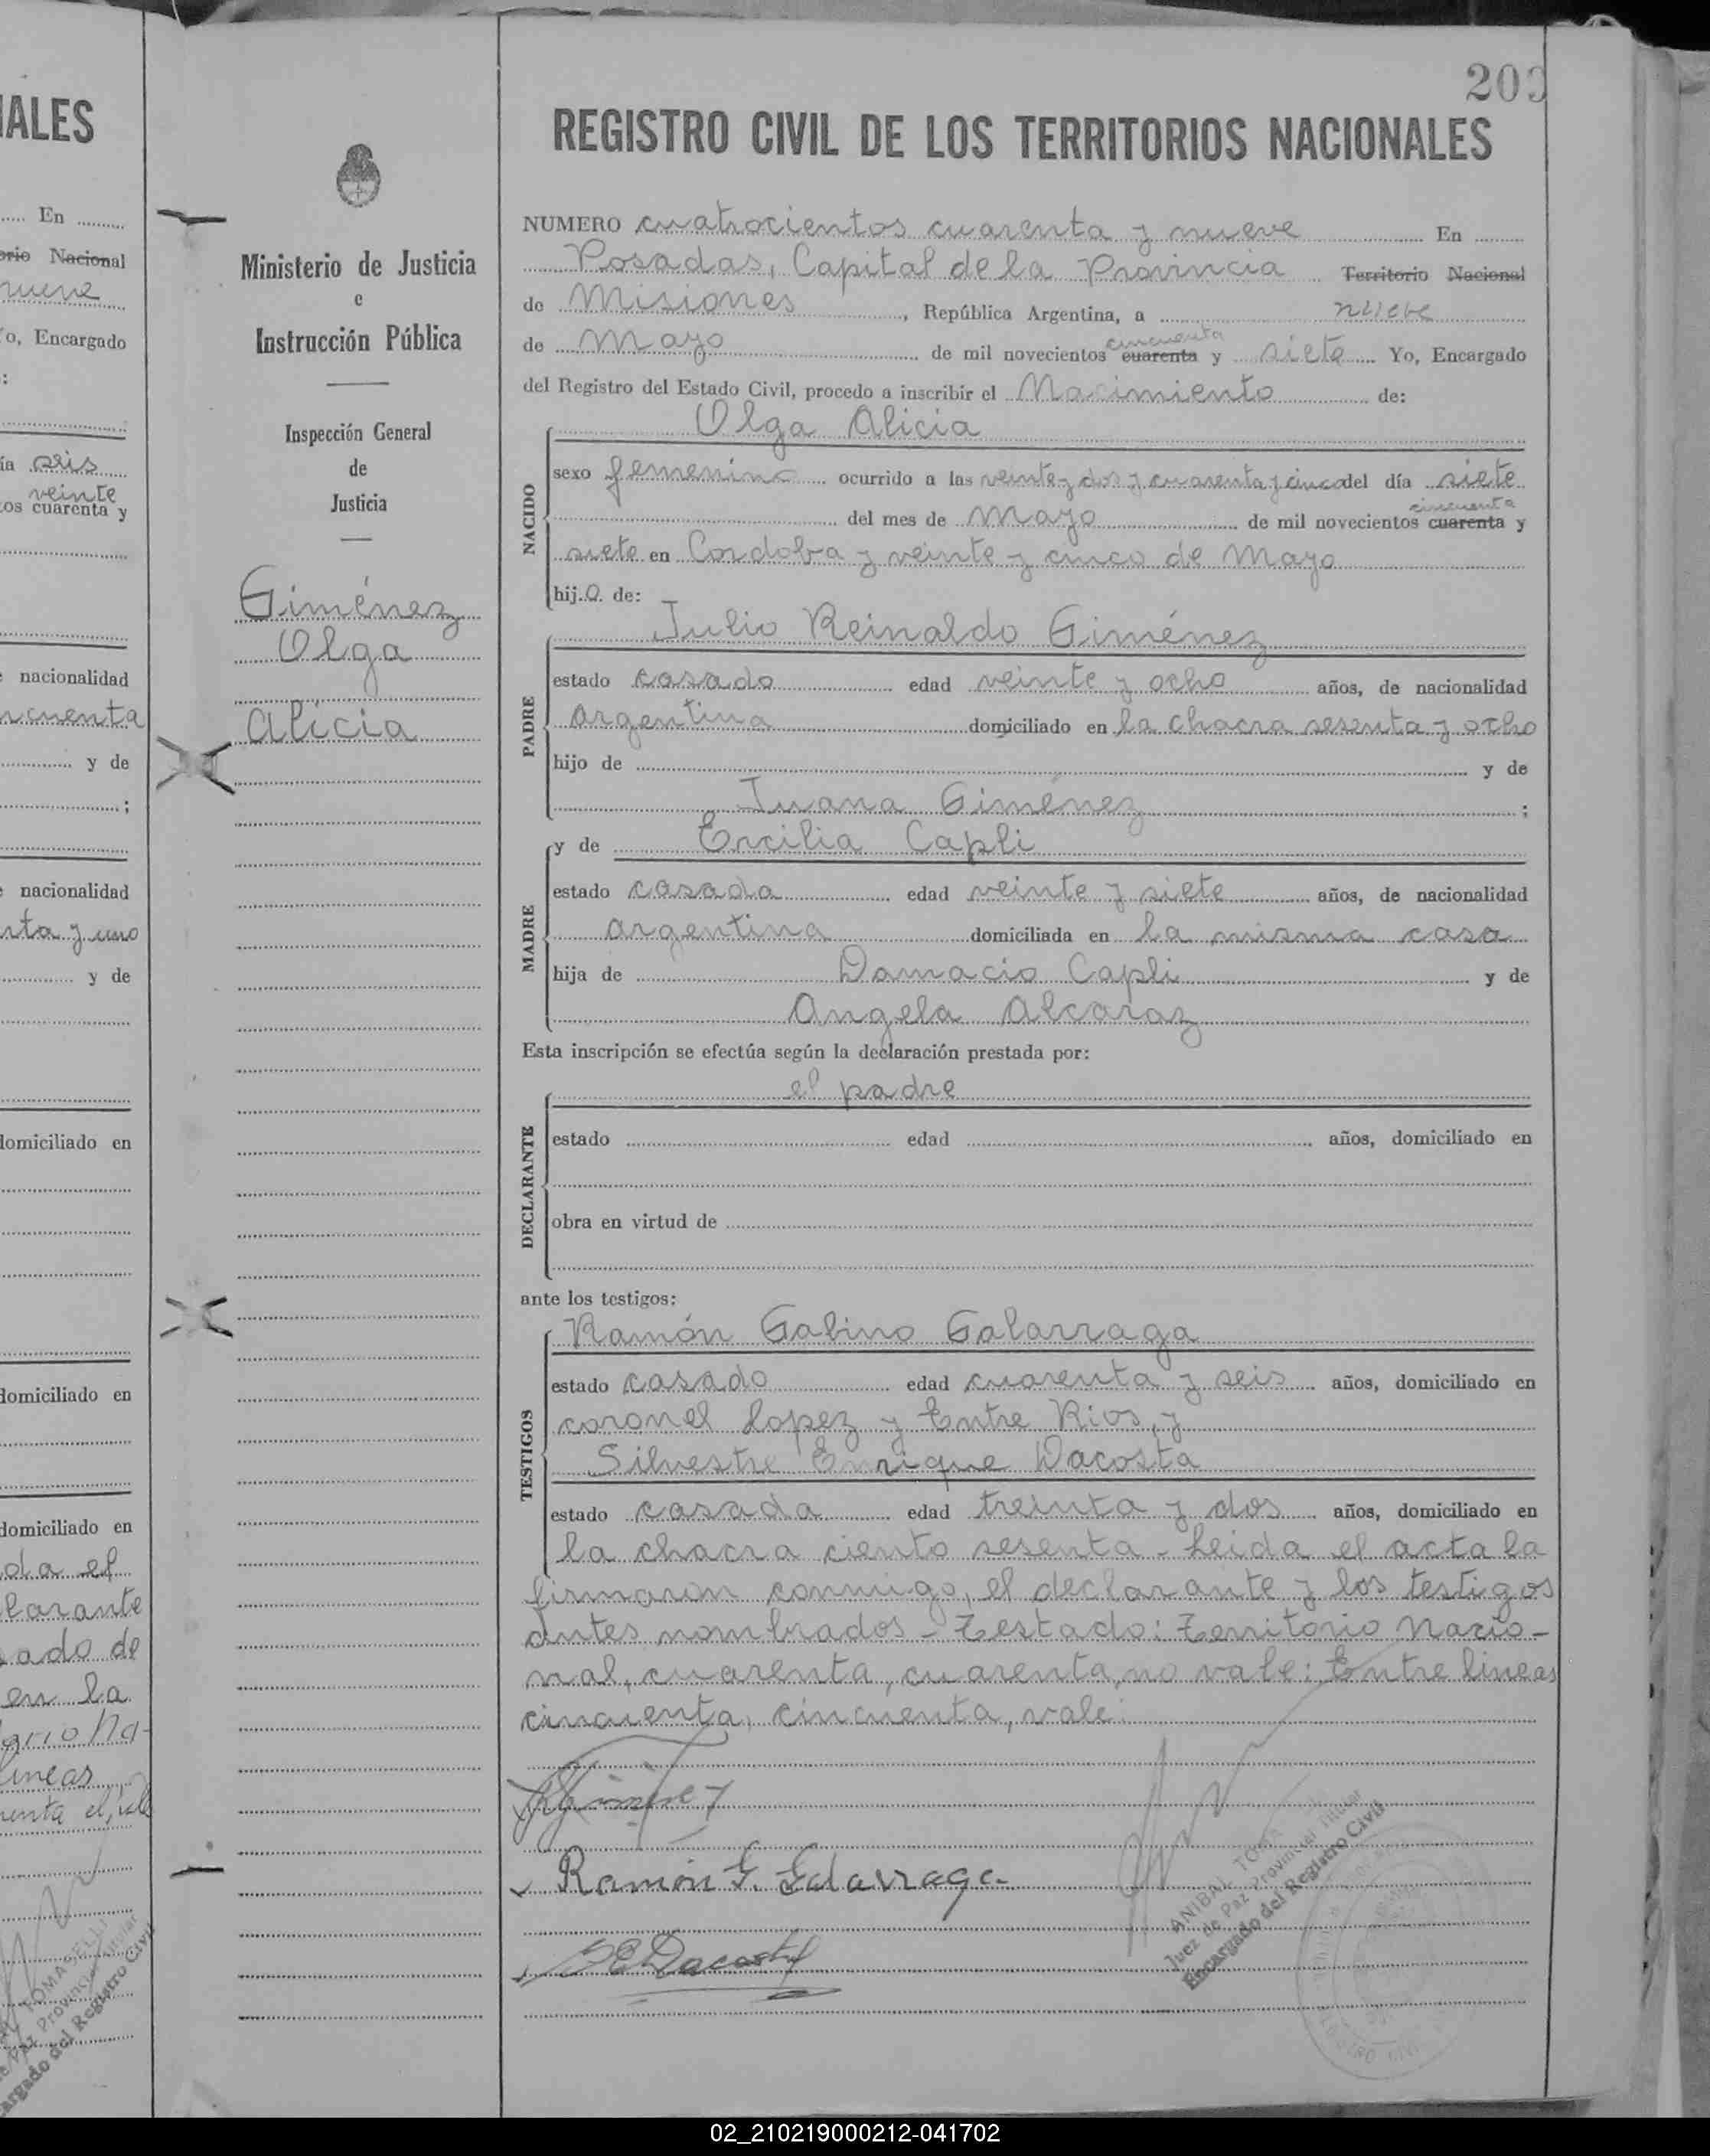 IALES
..... En .........
orio Nacional
nueve
Yo, Encargado
:
ía seis
veinte
tos cuarenta y
nacionalidad
ncuenta
y de
;
nacionalidad
nta y uno
y de
domiciliado en
domiciliado en
domiciliado en
da el
larante
ado de
en la
torio Na-
lineas
TOMASELLI
Paz Provincial Titular
Encargado del Registro Civil
Ministerio de Justicia
e
Instrucción Pública
Inspección General
de
Justicia
Giménez
Olga
Alicia
200
REGISTRO CIVIL DE LOS TERRITORIOS NACIONALES
NUMERO cuatrocientos cuarenta y nueve En
Posadas, Capital de la Provincia Territorio Nacional
de Misiones, República Argentina, a nueve
cincuenta
de Mayo de mil novecientos cuarenta y siete Yo, Encargado
del Registro del Estado Civil, procedo a inscribir el Nacimiento de:
Olga Alicia
NACIDO
sexo femenino ocurrido a las veinte y dos y cuarenta y cinco del día siete
cincuenta
del mes de Mayo de mil novecientos cuarenta y
siete en Cordoba y veinte y cinco de Mayo
hij.a de:
Julio Reinaldo Giménez
PADRE
estado casado edad veinte y ocho años, de nacionalidad
argentina domiciliado en la chacra sesenta y ocho
hijo de y de
Juana Giménez ;
y de Ercilia Capli
MADRE
estado casada edad veinte y siete años, de nacionalidad
argentina domiciliada en la misma casa
hija de Damacio Capli y de
Angela Alcaraz
Esta inscripción se efectúa según la declaración prestada por:
el padre
DECLARANTE
estado edad años, domiciliado en
obra en virtud de
ante los testigos:
Ramón Gabino Galarraga
TESTIGOS
estado casado edad cuarenta y seis años, domiciliado en
coronel Lopez y Entre Rios, y
Silvestre Enrique Dacosta
estado casada edad treinta y dos años, domiciliado en
la chacra ciento sesenta - Leida el acta la
firmaron conmigo, el declarante y los testigos
antes nombrados - Testado: Territorio Nacio-
nal, cuarenta, cuarenta, no vale: Entre lineas
cincuenta, cincuenta, vale.
Ramón G. Galarraga
S E Dacosta
ANIBAL TOMASELLI
Juez de Paz Provincial Titular
Encargado del Registro Civil
02_210219000212-041702